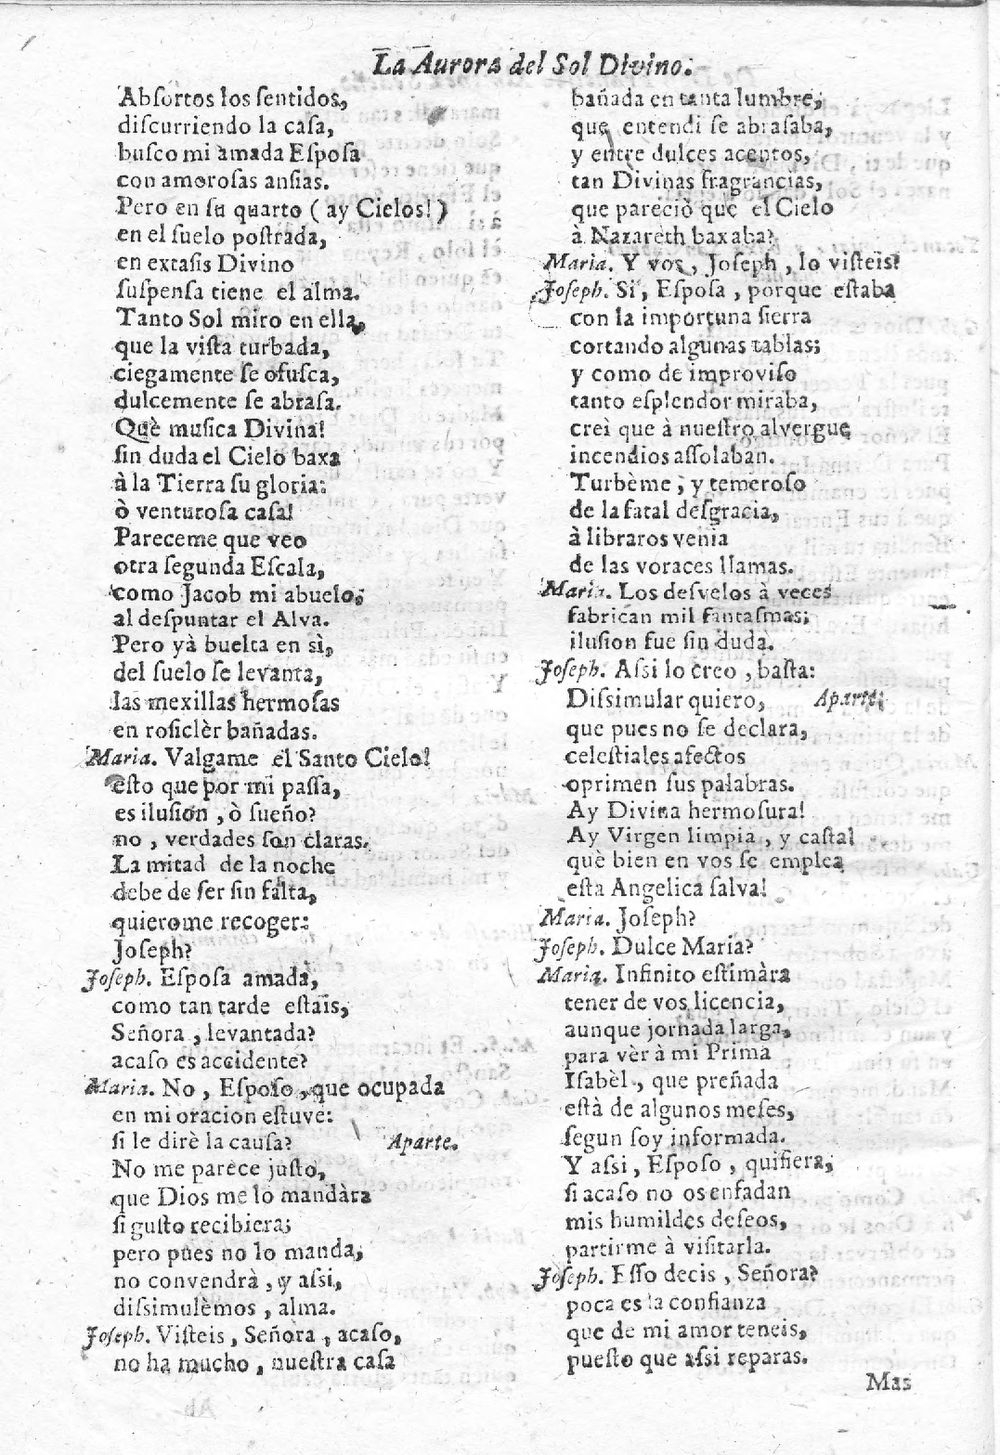 La Aurora del Sol Divino.
Absortos los ſentidos,
diſcurriendo la caſa,
buſco mi amada Eſpoſa
con amoroſas anſias.
Pero en ſu quarto (ay Cielos!)
en el ſuelo poſtrada,
en extaſis Divino
ſuſpenſa tiene el alma.
Tanto Sol miro en ella,
que la viſta turbada,
ciegamente ſe ofuſca,
dulcemente ſe abraſa.
Què muſica Divina!
ſin duda el Cielo baxa
à la Tierra ſu gloria:
ò venturoſa caſa!
Pareceme que veo
otra ſegunda Eſcala,
como Jacob mi abuelo,
al deſpuntar el Alva.
Pero yà buelta en sì,
del ſuelo ſe levanta,
las mexillas hermoſas
en roſiclèr bañadas.
Maria. Valgame el Santo Cielo!
eſto que por mi paſſa,
es iluſion, ò ſueño?
no, verdades ſon claras.
La mitad de la noche
debe de ſer ſin falta,
quierome recoger:
Joſeph?
Joſeph. Eſpoſa amada,
como tan tarde eſtais,
Señora, levantada?
acaſo es accidente?
Maria. No, Eſpoſo, que ocupada
en mi oracion eſtuve:
ſi le dirè la cauſa? Aparte.
No me parece juſto,
que Dios me lo mandàra
ſi guſto recibiera;
pero pues no lo manda,
no convendrà, y aſsi,
diſsimulèmos, alma.
Joſeph. Viſteis, Señora, acaſo,
no ha mucho, nueſtra caſa
bañada en tanta lumbre,
que entendi ſe abraſaba,
y entre dulces acentos,
tan Divinas fragrancias,
que pareciò que el Cielo
à Nazareth baxaba?
Maria. Y vos, Joſeph, lo viſteis?
Joſeph. Si, Eſpoſa, porque eſtaba
con la importuna ſierra
cortando algunas tablas;
y como de improviſo
tanto eſplendor miraba,
creì que à nueſtro alvergue
incendios aſſolaban.
Turbème, y temeroſo
de la fatal deſgracia,
à libraros venia
de las voraces llamas.
Maria. Los deſvelos à veces
fabrican mil fantaſmas;
iluſion fue ſin duda.
Joſeph. Aſsi lo creo, baſta:
Diſsimular quiero, Aparte.
que pues no ſe declara,
celeſtiales afectos
oprimen ſus palabras.
Ay Divina hermoſura!
Ay Virgen limpia, y caſta!
què bien en vos ſe emplea
eſta Angelica ſalva!
Maria. Joſeph?
Joſeph. Dulce Maria?
Maria. Infinito eſtimàra
tener de vos licencia,
aunque jornada larga,
para vèr à mi Prima
Iſabèl, que preñada
eſtà de algunos meſes,
ſegun ſoy informada.
Y aſsi, Eſpoſo, quiſiera,
ſi acaſo no os enfadan
mis humildes deſeos,
partirme à viſitarla.
Joſeph. Eſſo decis, Señora?
poca es la confianza
que de mi amor teneis,
pueſto que aſsi reparas.
Mas